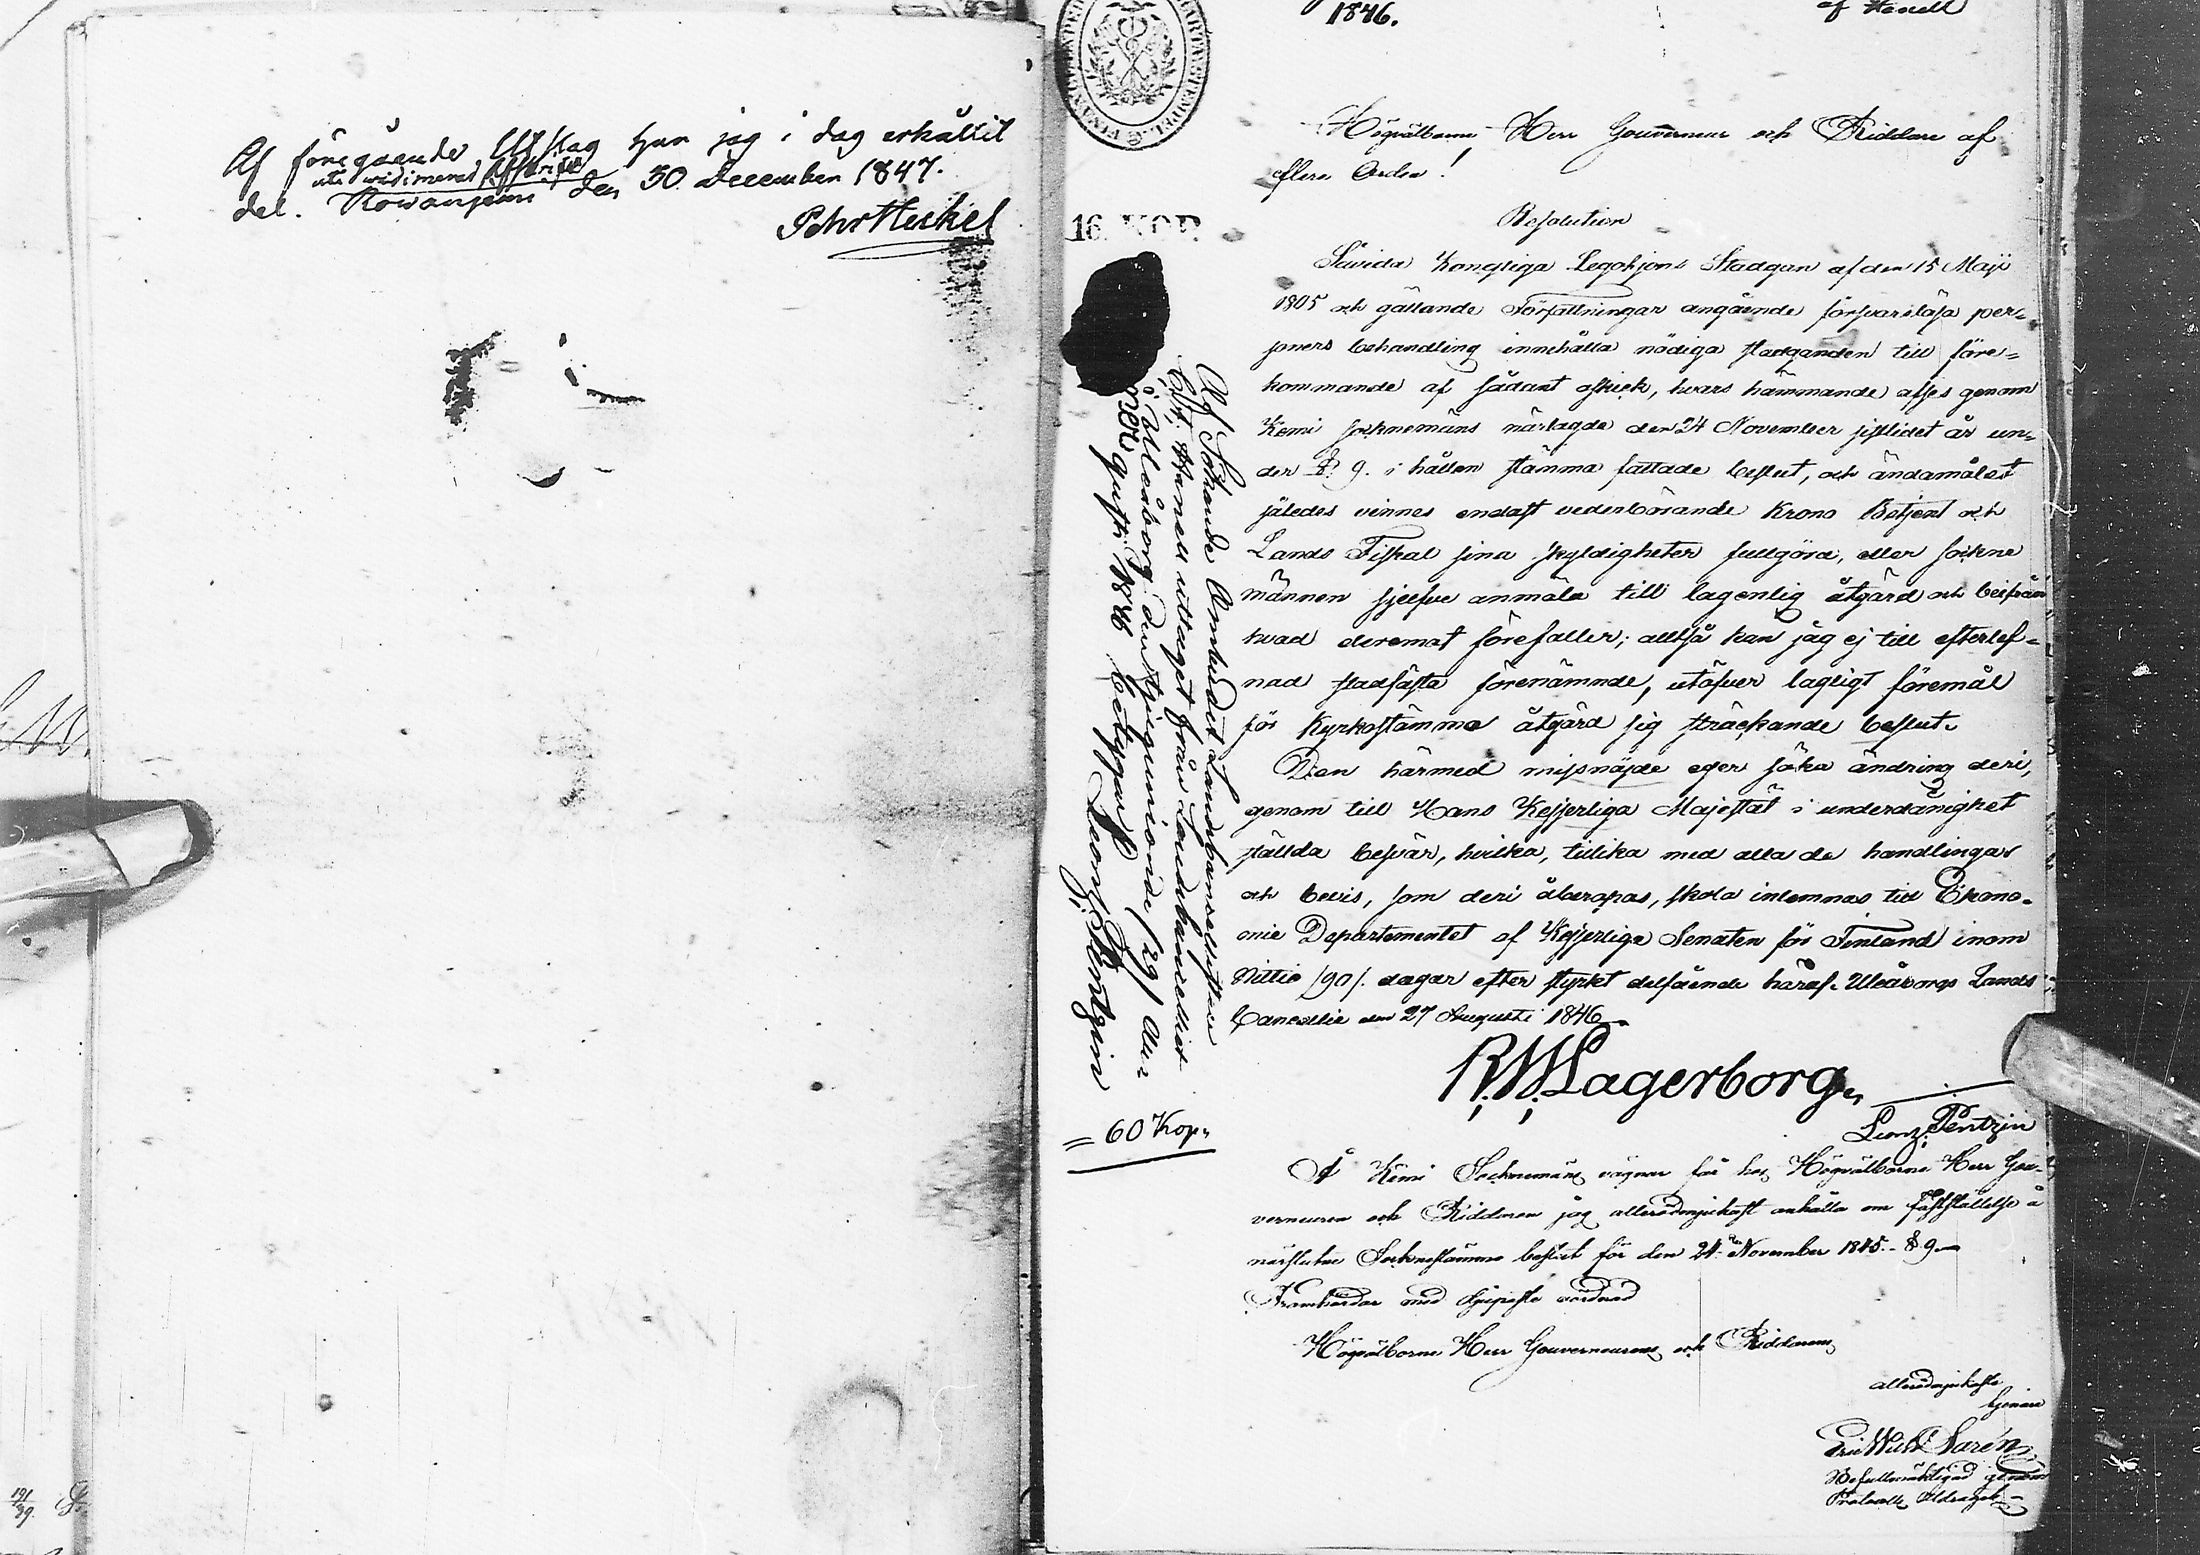 Af föregående Utslag har jag i dag erhållit
uti widimerad Afskrift
del. Rowaniemi den 30 December 1847.
1846.
af Hanell
Högvälborne Herr Gouverneur och Riddare af
flere Orden!
16. KOP.
Resolution
Såvida Kongliga Legohjons Stadgan af den 15 Maji
1805 och gällande Författningar angående försvarslösa per-
soners behandling innehålla nödiga stadganden till före-
kommande af sådant oskick, hvars hämmande afses genom
Kemi socknemäns närlagde den 24 November sistlidet år un-
der §. 9. i hållen stämma fattade beslut, och ändamålet
således vinnes endast vederbörande Krono Betjent och
Lands Fiskal sina skyldigheter fullgöra, eller sockne
männen sjelfve anmäla till lagenlig åtgärd och beifran
hvad deremot förefaller; alltså kan jag ej till efterlef-
nad stadfästa förenämnde, utöfver lagligt föremål
för Kyrkostämma åtgärd sig sträckande beslut.
Den härmed missnöjde eger söka ändring deri,
genom till Hans Kejserliga Majestät i underdånighet
ställda besvär, hvilka, tillika med alla de handlingar
och bevis, som deri åberopas, skola inlemnas till Ekono-
mie Departementet af Kejserliga Senaten för Finland inom
Nittio /90/. dagar efter styrkt delfående häraf. Uleåborgs Lands
Cancellie den 27 Augusti 1846.
R. W. Lagerborg.
Leon. Pentzin
Å Kemi Socknemäns vägnar får hos Högvälborne Herr Gou-
verneuren och Riddaren jag allerödmjukast anhålla om fastställelse å
närslutne Socknestämmo beslut för den 24de November 1845. § 9.
Framhärdar med djupaste vördnad
Högvälborne Herr Gouverneurens och Riddarens
allerödmjukaste
tjenare
Eric Wilh. Sarén
Befullmäktigad genom
Af Sökande Ombudet Landskanselisten
C. F. Hanell uttaget från Landskancelliet
i Uleåborg den tjugunionde /29/ Au-
gusti 1846 betygar Leon. Pentzin
= 60 Kop.